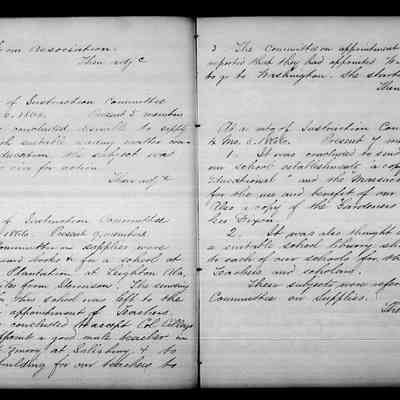 from Association.
Then adj'd
of Instruction Committee
6, 1866. Present 5 members
concluded desirable to supply
with suitable reading matter on
Education, the subject was
over for action.
Then adj'd
of Instruction Committee
1866. Present 9 members
Committee on supplies were
send books &c for a school at
Plantation at Leighton Ala,
miles from Stevenson. The sending
for this school was left to the
appointment of Teachers.
concluded to accept Col.
appoint a good male teacher in
at Salisbury & to
building for our teachers to
3 The Committee on appointment
reported that they had appointed
to go to Washington. She started
Then
At a mtg of Instruction Com
4 Mo. 5. 1866. Present 7 mem
1. It was concluded to send
our school establishments a copy
Educational" and the "Massachu
for the use and benefit of our
Also a copy of the Gardeners
Geo Dixon.
2. It was also thought
a suitable school library sh
to each of our schools for the
Teachers and scholars.
These subjects were refer
Committee on Supplies.
The